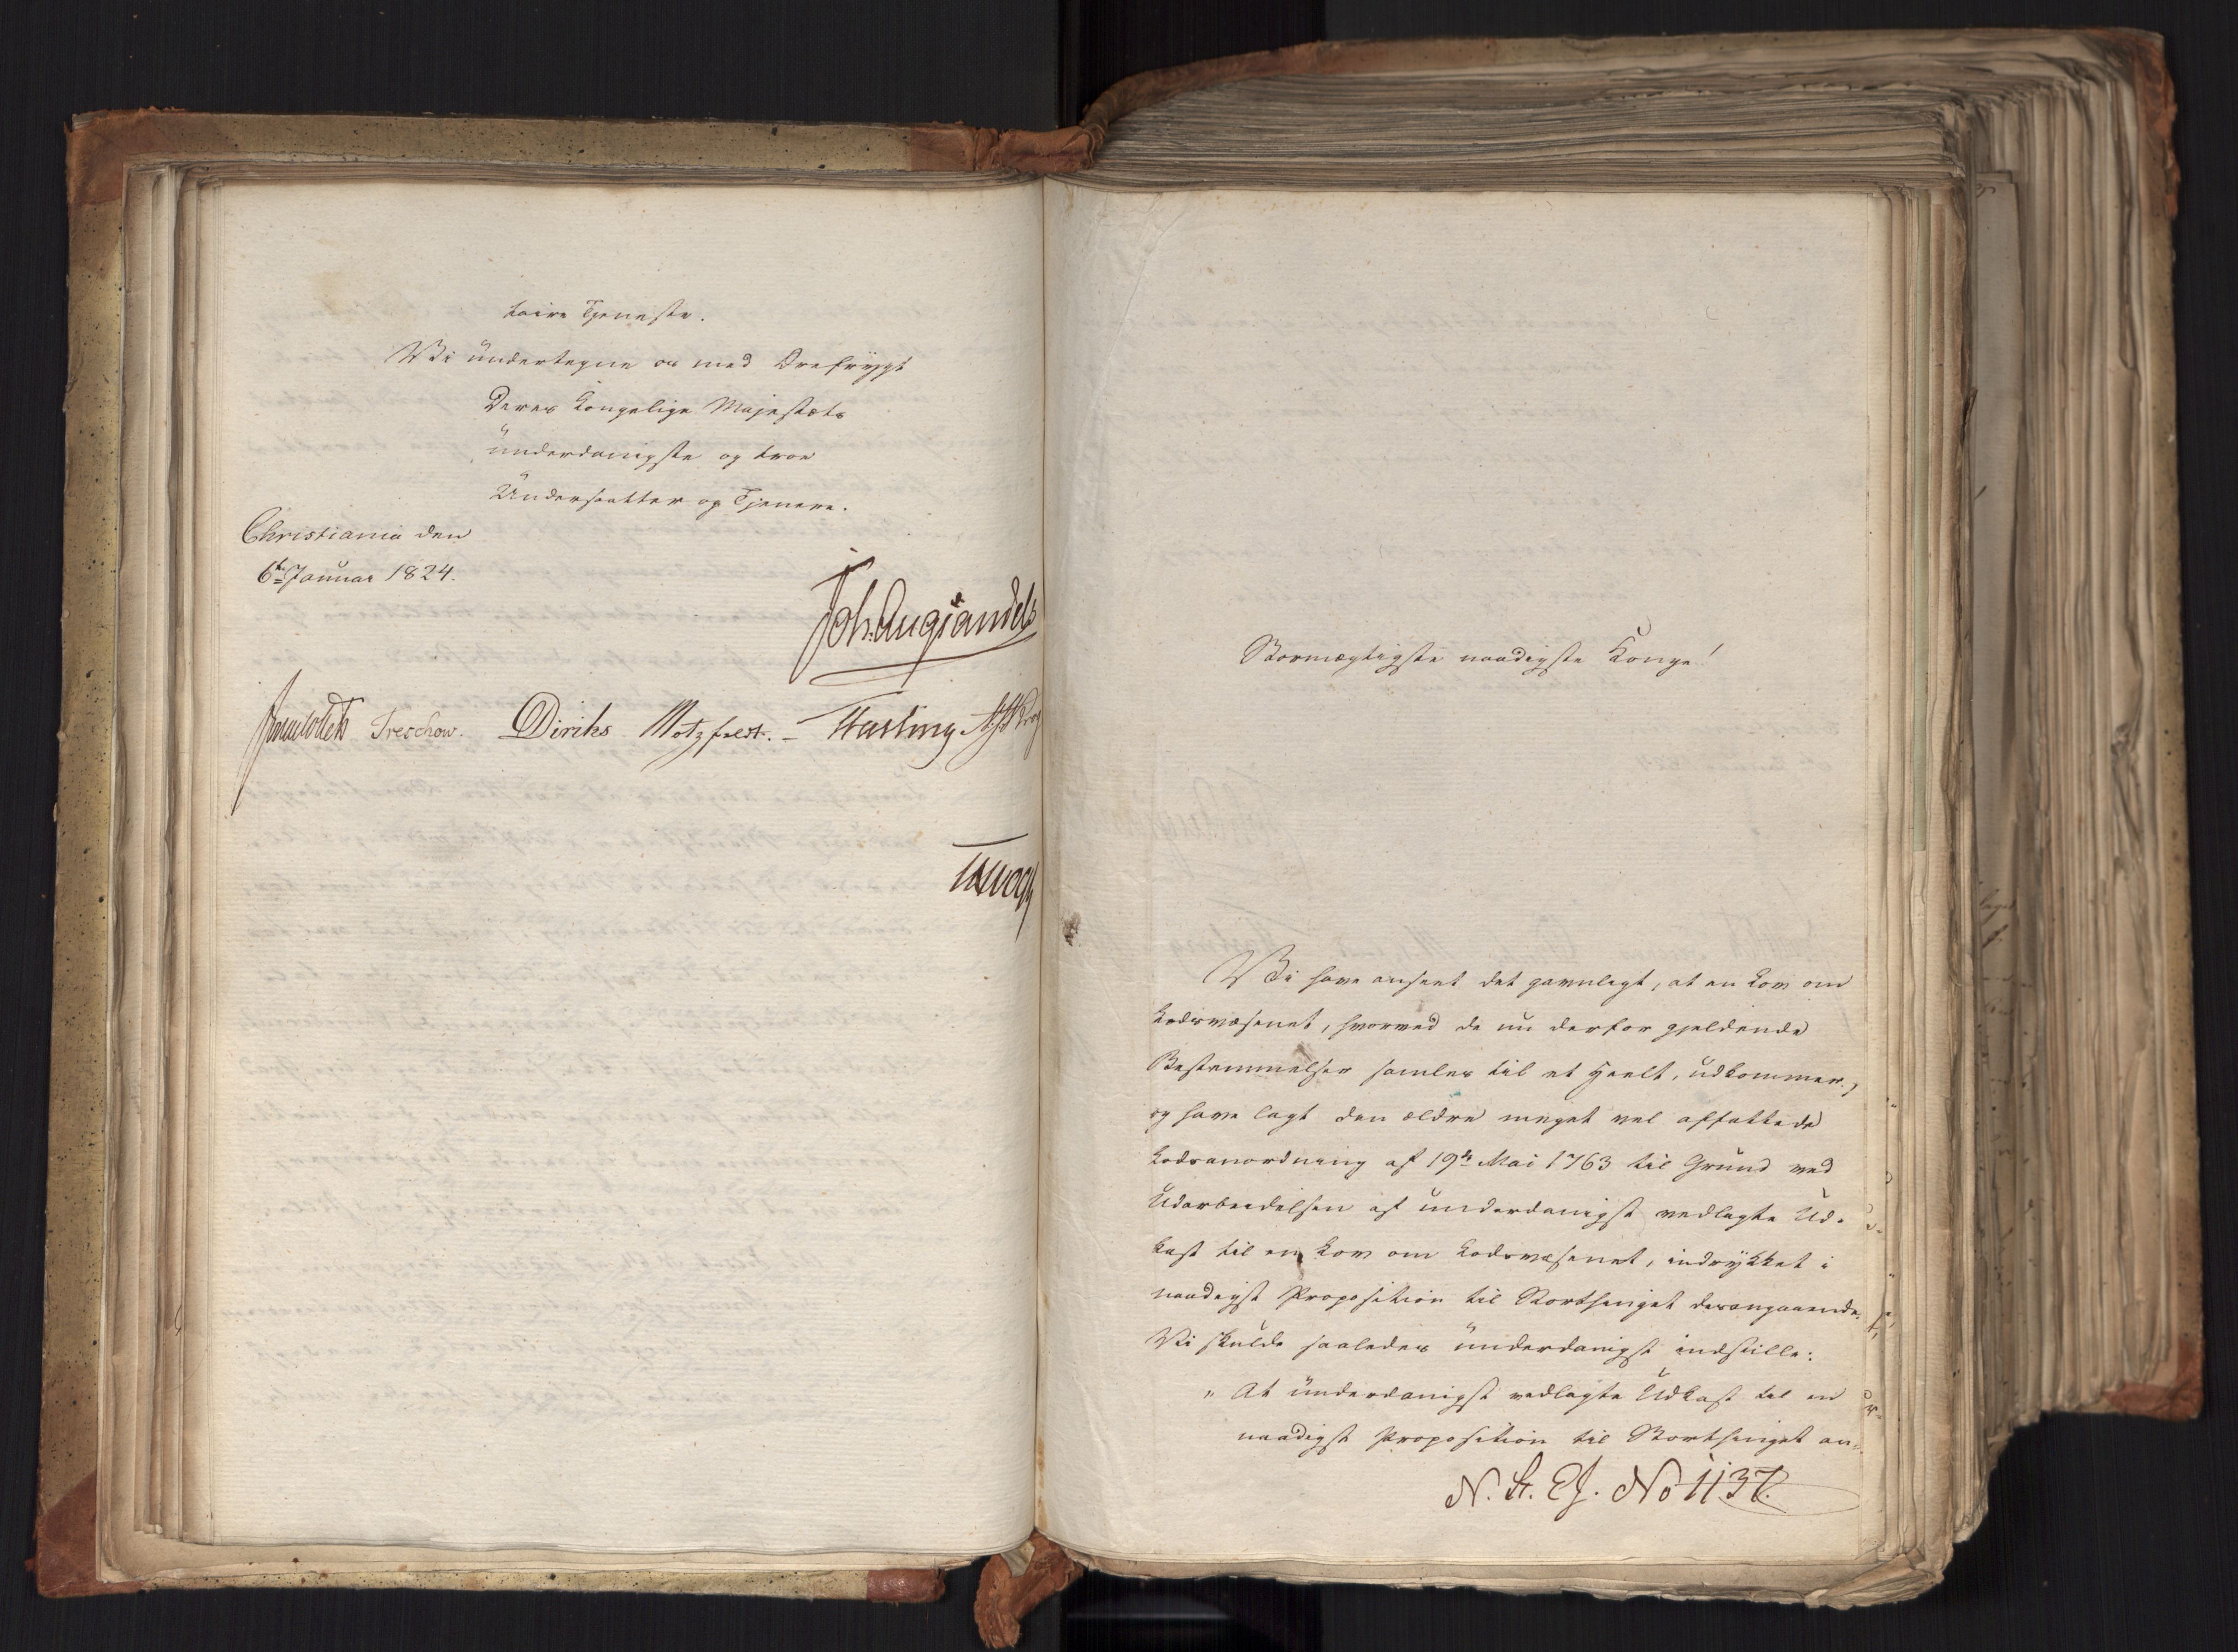 taire Tjeneste.
Vi undertegne os med Ærefrygt
Deres Kongelige Majestæts
underdanigste og troe
Undersaatter og Tjenere.
Christiania den
6te Januar 1824.
Joh. Aug. Sandels
Sommerhielm Treschow. Diriks Motzfeldt. Fasting
Stormægtigste naadigste Konge!
Vi have anseet det gavnligt, at en Lov om
Lodsvæsenet, hvorved de nu derfor gjeldende
Bestemmelser samles til et Heelt, udkommer,
og have lagt den ældre meget vel affattede
Lodsanordning af 19de Mai 1763 til Grund ved
Udarbeidelsen af underdanigst vedlagte Ud-
kast til en Lov om Lodsvæsenet, indrykket i
naadigst Proposition til Storthinget desangaaende.
Vi skulde saaledes underdanigst indstille:
" At underdanigst vedlagte Udkast til en
naadigst Proposition til Storthinget an-
N. St. Ex. No 1137.